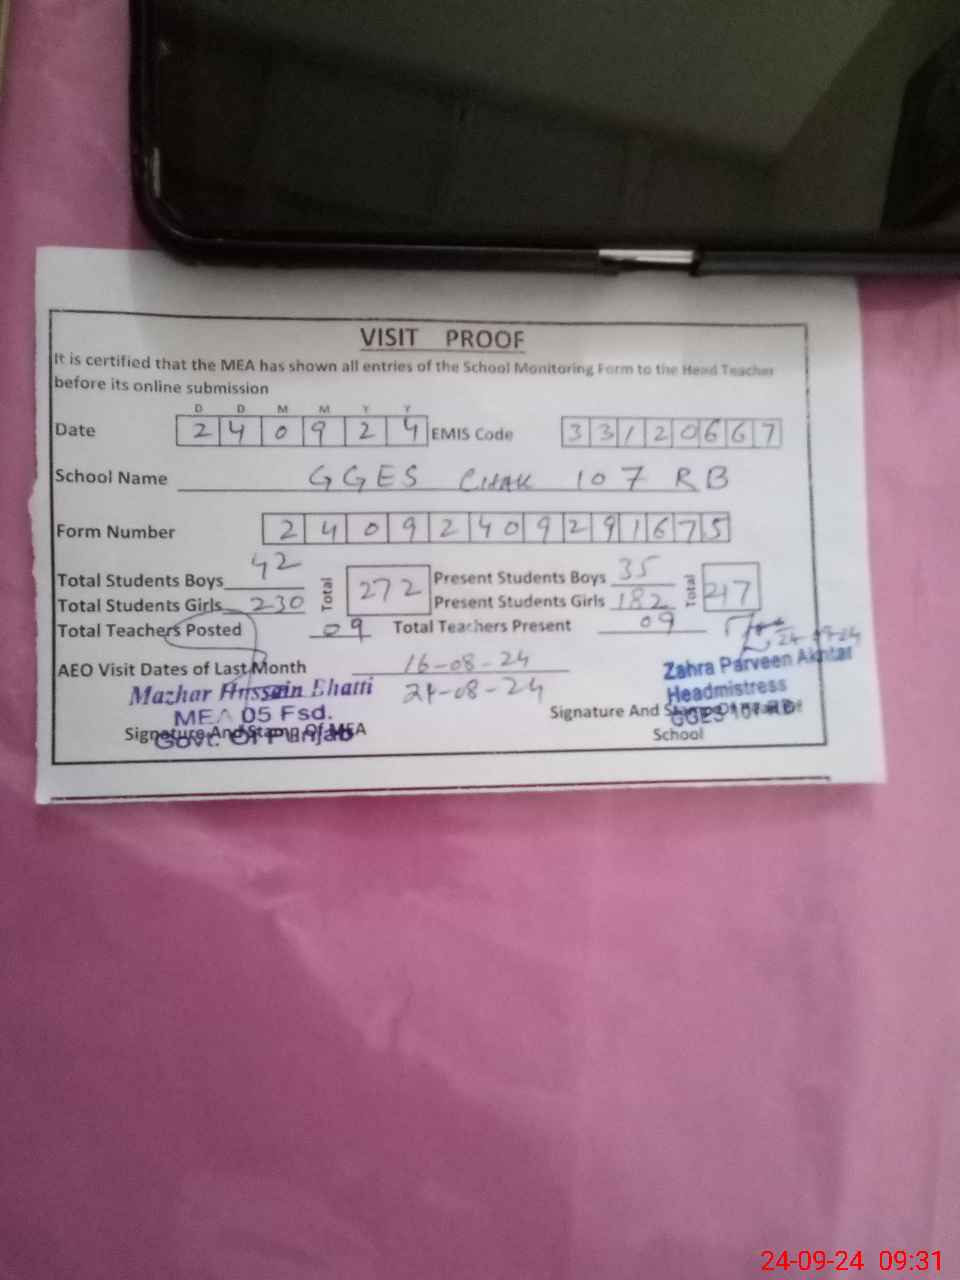 VISIT PROOF
It is certified that the MEA has shown all entries of the School Monitoring Form to the Head Teacher
before its online submission
D D M M Y Y
Date 2 4 0 9 2 4 EMIS Code 3 3 1 2 0 6 6 7
School Name GGES CHAK 107 RB
Form Number 2 4 0 9 2 4 0 9 2 9 1 6 7 5
Total Students Boys 42 Total 272 Present Students Boys 35 Total 217
Total Students Girls 230 Present Students Girls 182
Total Teachers Posted 09 Total Teachers Present 09
24-09-24
AEO Visit Dates of Last Month 16-08-24
24-08-24
Mazhar Hussain Bhatti
MEA 05 Fsd.
Govt. Of Punjab
Signature And Stamp Of MEA
Zahra Parveen Akhtar
Headmistress
GGES 107 RB
Signature And Stamp Of Head Of
School
24-09-24 09:31